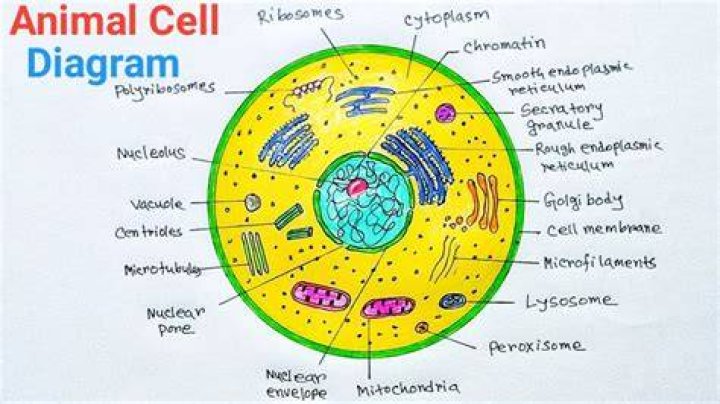 Animal Cell
Diagram
Ribosomes
Cytoplasm
Chromatin
Polyribosomes
Smooth endoplasmic
reticulum
Secratory
granule
Nucleolus
Rough endoplasmic
reticulum
Vacuole
Golgi body
Centrioles
Cell membrane
Microtubules
Microfilaments
Nuclear
pore
Lysosome
Peroxisome
Nuclear
envelope
Mitochondria